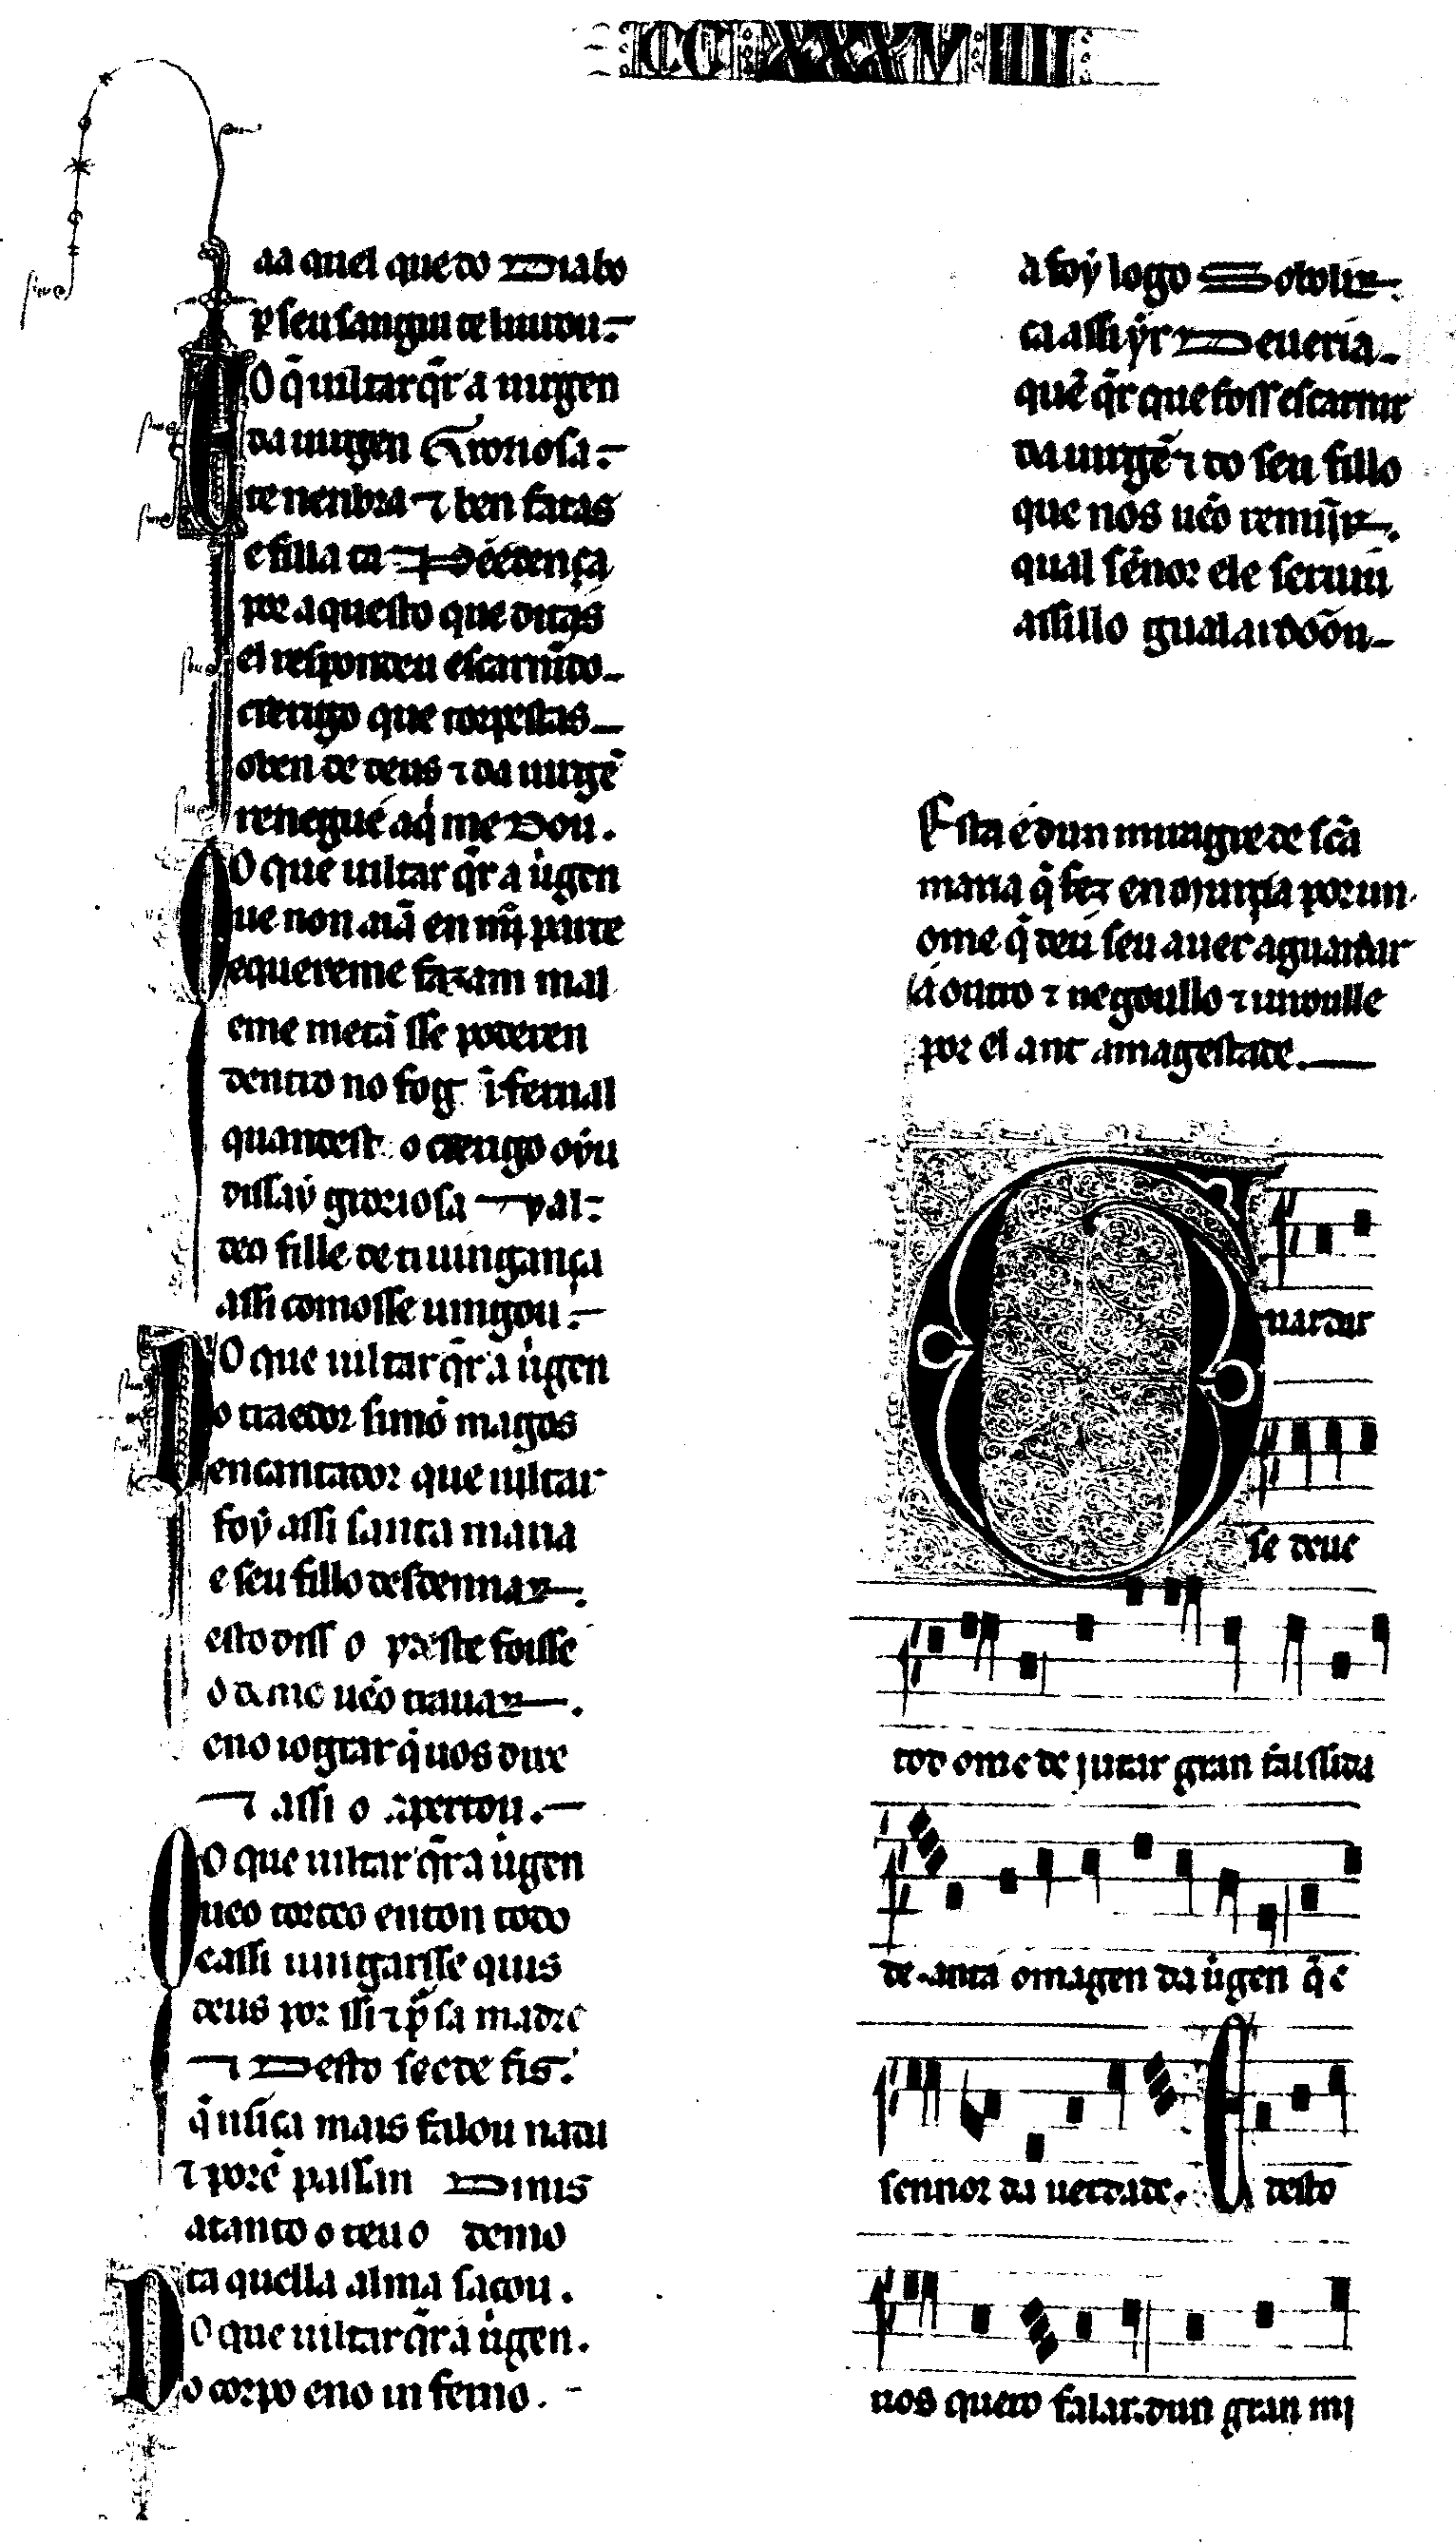 CCXXXVIIII
aa quel que do Diabo
p̲ seu sangui te liurou.
O q̄ uiltar q̄r a uirgen
da uirgen Groriosa.
E te nenbra ⁊ ben faras
e filla ta Pẽedença
por aquesto que diras
el respondeu escarnin̄do
crerigo que torpestas
o ben de deus ⁊ da uirgẽ
renegué aq́ me Dou.
O que uiltar q̄r a uı̇gen
Que non aiã en mı̄ parte
e quereme fazam mal
e me metã sse poderen
dentro no fog ĩfernal
quandest o crerigo oýu
dissaẏ groriosa ual
deo fille de ti uingança
assi comosse uingou.
O que uiltar q̄r a uı̇gen
Do traedor simõ magos
encantador que uiltar
foẏ assi santa maria
e seu fillo desdennar.
esto diss o preste foisse
o demo uẽo trauar.
eno iograr q̄ uos dixe
⁊ assi o apertou.
O que uiltar q̄r a uı̇gen
Queo torceo enton todo
e assi uingarsse quis
deus por ssi ⁊ p̲ sa madre
⁊ Desto seede fis.
q̄ nũca mais falou nada
⁊ porẽ passan Dinis
atanto o teuo demo
ta quella alma sacou.
O que uiltar q̄r a uı̇gen.
Do corpo eno inferno.
a foẏ logo Sobolir.
ca assi ẏr Deueria
quẽ q̄r que foss escarnir
da uirgẽ ⁊ do seu fillo
que nos uẽo remĩir.
qual sẽnor ele seruiu
assillo gualardõou
Esta é dun miragre de scã
maria q̄ fez en Murça por un
ome q̄ deu seu auer a guardar
a outro ⁊ negoullo ⁊ iuroulle
por el ant a magestade.
Guardar
se deue
tod ome de jurar gran falssida
de anta omagen da uı̇gen q̄ é
sennor da uerdade. E desto
uos quero falar. dun gran mi